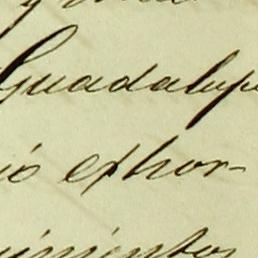 Guadalup
ió exhor-
imientos